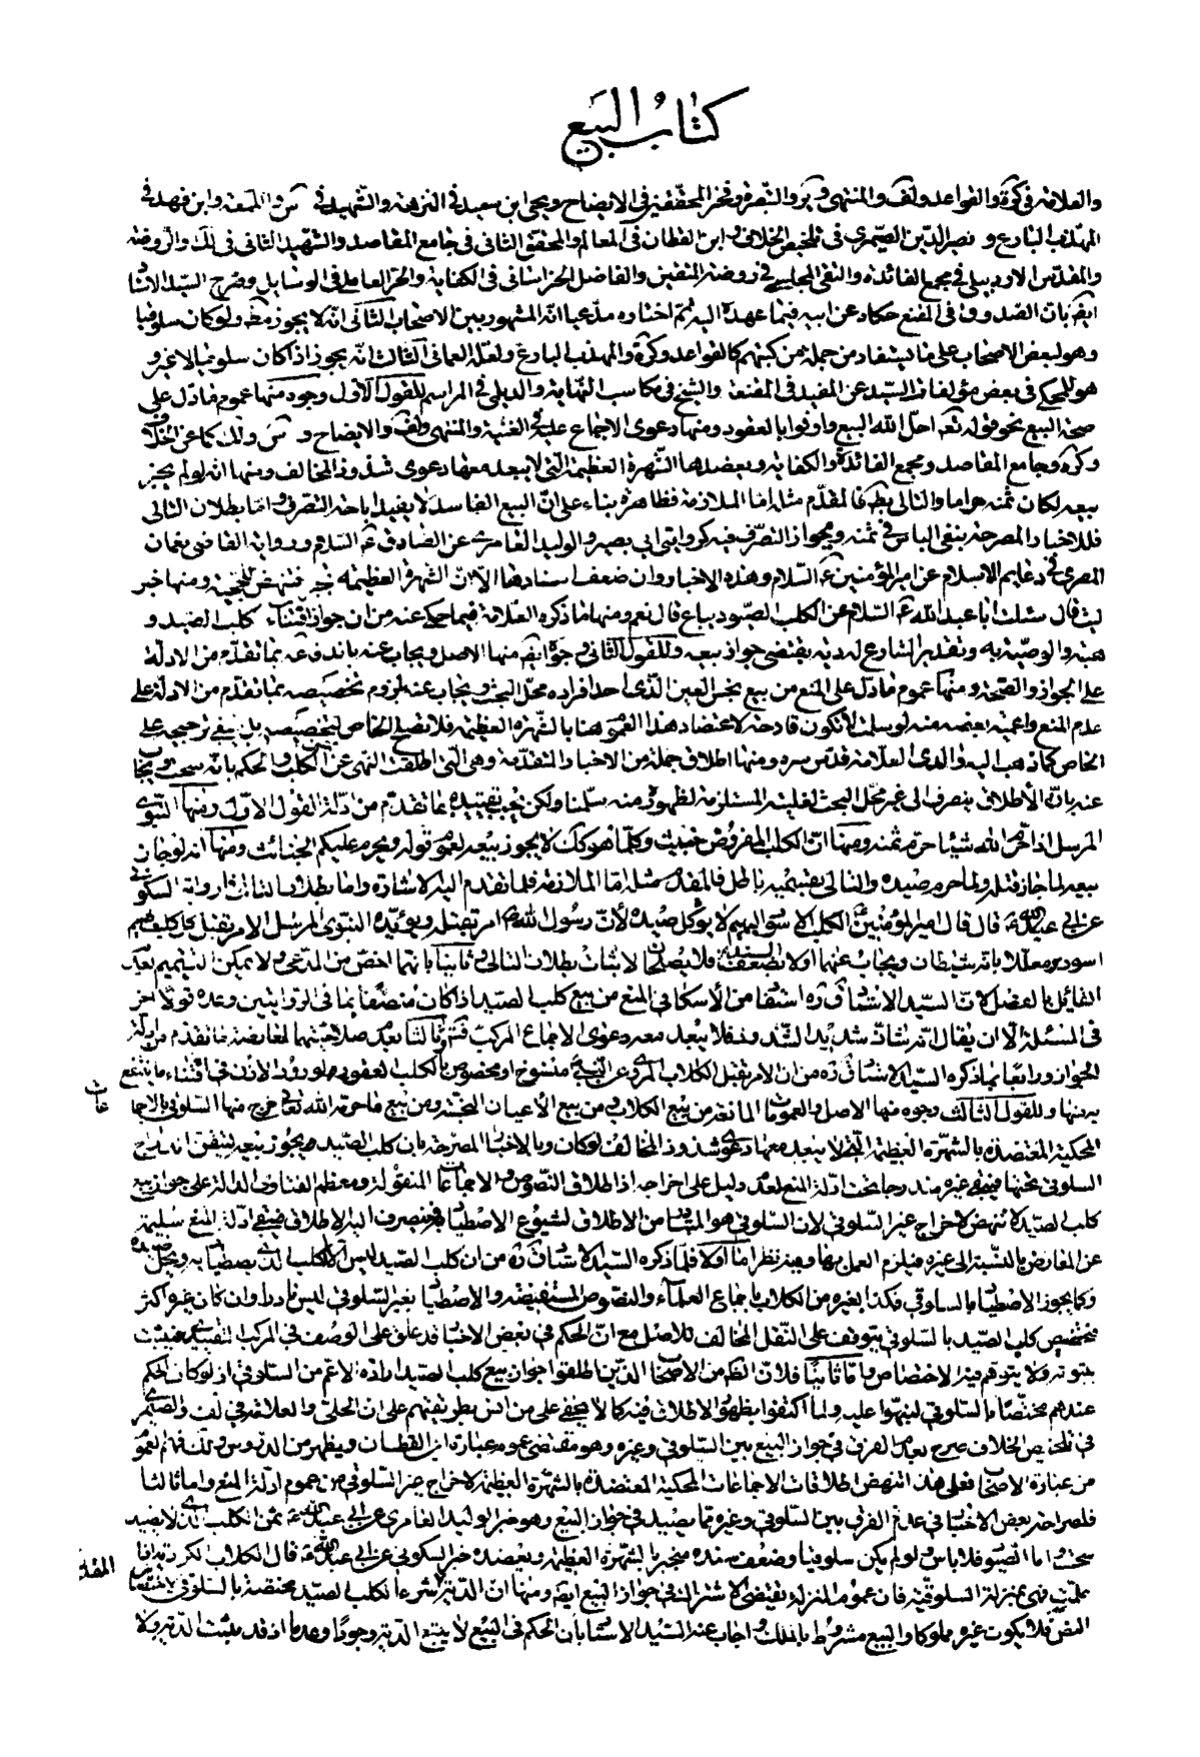 كتاب البيع
والعلامة في كرة والقواعد ولف والمنتهى وير والتبصرة وفخر المحققين في الايضاح ويحيى ابن سعيد في النزهة والشهيد في س واللمعة وابن فهد في
المهذب البارع و نصير الدين الصيمري في تلخيص الخلاف وابن القطان في المعالم والمحقق الثاني في جامع المقاصد والشهيد الثاني في لك والروضة
والمقدس الاردبيلي في مجمع الفائدة والتقي المجلسي في روضة المتقين والفاضل الخراساني في الكفاية والحر العاملي في الوسايل وصرح السيد الاستاد
ايضا بان الصدوق في المقنع حكاه عن ابيه فيما عهده اليه ثم اختاره مدعيا انه المشهور بين الاصحاب الثاني انه لا يجوز مط ولو كان سلوقيا
وهو لبعض الاصحاب على ما يستفاد من جملة من كتبهم كالقواعد وكرة والمهذب البارع ولعله العماني الثالث انه يجوز اذا كان سلوقيا لا غير و
هو المحكي في بعض مؤلفات السيد عن المفيد في المقنعة والشيخ في مكاسب النهاية والديلمي في المراسم للقول الاول وجوه منها عموم ما دل على
صحة البيع نحو قوله تعالى احل الله البيع واوفوا بالعقود ومنها دعوى الاجماع عليه في الغنية والمنتهى ولف والايضاح و س ولك كما عن الخلاف
وكرة وجامع المقاصد ومجمع الفائدة والكفاية ويعضدها الشهرة العظيمة التي لا يبعد معها دعوى شذوذ المخالف ومنها انه لو لم يجز
بيعه لكان ثمنه حراما والتالي بط فالمقدم مثله اما الملازمة فظاهرة بناء على ان البيع الفاسد لا يفيد اباحة التصرف واما بطلان التالي
فللاخبار المصرحة بنفي الباس في ثمنه وبجواز التصرف فيه كروايتي ابي بصير والوليد العامري عن الصادق عليه السلام ورواية القاضي نعمان
المصري في دعايم الاسلام عن امير المؤمنين عليه السلام وهذه الاخبار وان ضعف اسنادها الا ان الشهرة العظيمة تجبره فتنهض للحجية ومنها خبر
ليث قال سئلت ابا عبد الله عليه السلام عن الكلب الصيود يباع قال نعم ومنها ما ذكره العلامة فيما حكي عنه من ان جواز اقتناء كلب الصيد و
هبته والوصية به وتقدير الشارع له دية يقتضي جواز بيعه وللقول الثاني وجوه ايضا منها الاصل ويجاب عنه باندفاعه بما تقدم من الادلة
على الجواز والصحة ومنها عموم ما دل على المنع من بيع نجس العين الذي احد افراده محل البحث ويجاب عنه بلزوم تخصيصه بما تقدم من الادلة على
عدم المنع واعمية بعضه منه لو سلمت لا تكون قادحة لاعتضاد هذا العموم هنا بالشهرة العظيمة فلا يصلح الخاص لتخصيصه بل ينبغي ترجيحه على
الخاص كما ذهب اليه والدي العلامة قدس سره ومنها اطلاق جملة من الاخبار المتقدمة وهي التي اطلقت النهي عن الكلب والحكم بانه سحت ويجاب
عنه بان الاطلاق ينصرف الى غير محل البحث لغلبته المستلزمة لظهوره منه سلمنا ولكن يجب تقييده بما تقدم من ادلة القول الاول ومنها النبوي
المرسل اذا حرم الله شيئا حرم ثمنه ومنها ان الكلب المفروض خبيث وكلما هو كك لا يجوز بيعه لعموم قوله ويحرم عليكم الخبائث ومنها انه لو جاز
بيعه لما جاز قتله ولما حرم صيده والتالي بقسميه باطل فالمقدم مثله اما الملازمة فلما تقدم اليه الاشارة واما بطلان التالي فلرواية السكوني
عن ابي عبد الله ع قال قال امير المؤمنين الكلب الاسود البهيم لا يؤكل صيده لأن رسول الله ص امر بقتله ويؤيده النبوي المرسل الامر بقتل كل كلب بهيم
اسود معللا بانه شيطان ويجاب عنها اولا بضعف السند فلا يصلحان لاثبات بطلان التالي وثانيا بانهما اخص من المدعى ولا يمكن التتميم بعدم
القائل بالفصل لان السيد الاستاد قده استثنى من الأسكافي المنع من بيع كلب الصيد اذا كان متصفا بما في الروايتين وعده قولا اخر
في المسئلة الا ان يقال انه شاذ شديد الشذوذ فلا يبعد معه دعوى الاجماع المركب فتم وثالثا ببعد صلاحيتهما لمعارضة ما تقدم من ادلة
الجواز ورابعا بما ذكره السيد الاستاد قده من ان الامر بقتل الكلاب المروي عن النبي ص منسوخ او مخصوص بالكلب العقور لورود الاذن في اقتناء ما ينتفع
به منها وللقول الثالث وجوه منها الاصل والعمومات المانعة من بيع الكلاب ومن بيع الأعيان النجسة ومن بيع ما حرمه الله تعالى خرج منها السلوقي بالاجماعات
المحكية المعتضدة بالشهرة العظيمة التي لا يبعد معها دعوى شذوذ المخالف لو كان وبالاخبار المصرحة بان كلب الصيد يجوز بيعه لتيقن اندراج
السلوقي تحتها فيبقى غيره مندرجا تحت ادلة المنع لعدم دليل على اخراجه اذ اطلاق النصوص والاجماعات المنقولة ومعظم الفتاوى الدالة على جواز بيع
كلب الصيد لا تنهض لاخراج غير السلوقي لان السلوقي هو المتبادر من الاطلاق لشيوع الاصطياد به فينصرف اليه الاطلاق فيبقى ادلة المنع سليمة
عن المعارض بالنسبة الى غيره فيلزم العمل بها وفيه نظر اما اولا فلما ذكره السيد الاستاد قده من ان كلب الصيد ليس الا الكلب الذي يصطاد به ويحل صيده
وكما يجوز الاصطياد بالسلوقي فكذا بغيره من الكلاب باجماع العلماء والنصوص المستفيضة والاصطياد بغير السلوقي ليس نادرا وان كان غيره اكثر
فتخصيص كلب الصيد بالسلوقي يتوقف على النقل المخالف للاصل مع ان الحكم في بعض الاخبار قد علق على الوصف في المركب التقييدي فيثبت
بثبوته ولا يتوهم فيه الاختصاص واما ثانيا فلان الظ من الاصحاب الذين اطلقوا جواز بيع كلب الصيد ارادة الاعم من السلوقي اذ لو كان الحكم
عندهم مختصا بالسلوقي لنبهوا عليه ولما اكتفوا بظهور الاطلاق فيه كما لا يخفى على من انس بطريقتهم على ان الحلي والعلامة في لف والصيمري
في تلخيص الخلاف صرح بعدم الفرق في جواز البيع بين السلوقي وغيره وهو مقتضى عموم عبارة ابن القطان ويظهر من الدروس ولك فهم العموم
من عبارة الاصحاب فعلى هذا تنهض اطلاقات الاجماعات المحكية المعتضدة بالشهرة العظيمة لاخراج غير السلوقي من عموم ادلة المنع واما ثالثا
فلصراحة بعض الاخبار في عدم الفرق بين السلوقي وغيره مما يصيد في جواز البيع وهو خبر الوليد العامري عن ابي عبد الله ع ثمن الكلب الذي لا يصيد
سحت واما الصيود فلا باس ولو لم يكن سلوقيا وضعف سنده منجبر بالشهرة العظيمة ويعضده خبر السكوني عن ابي عبد الله ع قال الكلاب الكردية اذا
علمت فهي بمنزلة السلوقية فان عموم المنزلة يقتضي الاشتراك في جواز البيع ايضا ومنها ان الدية شرعا لكلب الصيد مختصة بالسلوقي لاختصاص
النص فلا يكون غيره مملوكا والبيع مشروط بالملك واجاب عنه السيد الاستاد بان الحكم في البيع لا يتبع الدية وجودا وعدما اذ قد يثبت الدية ولا